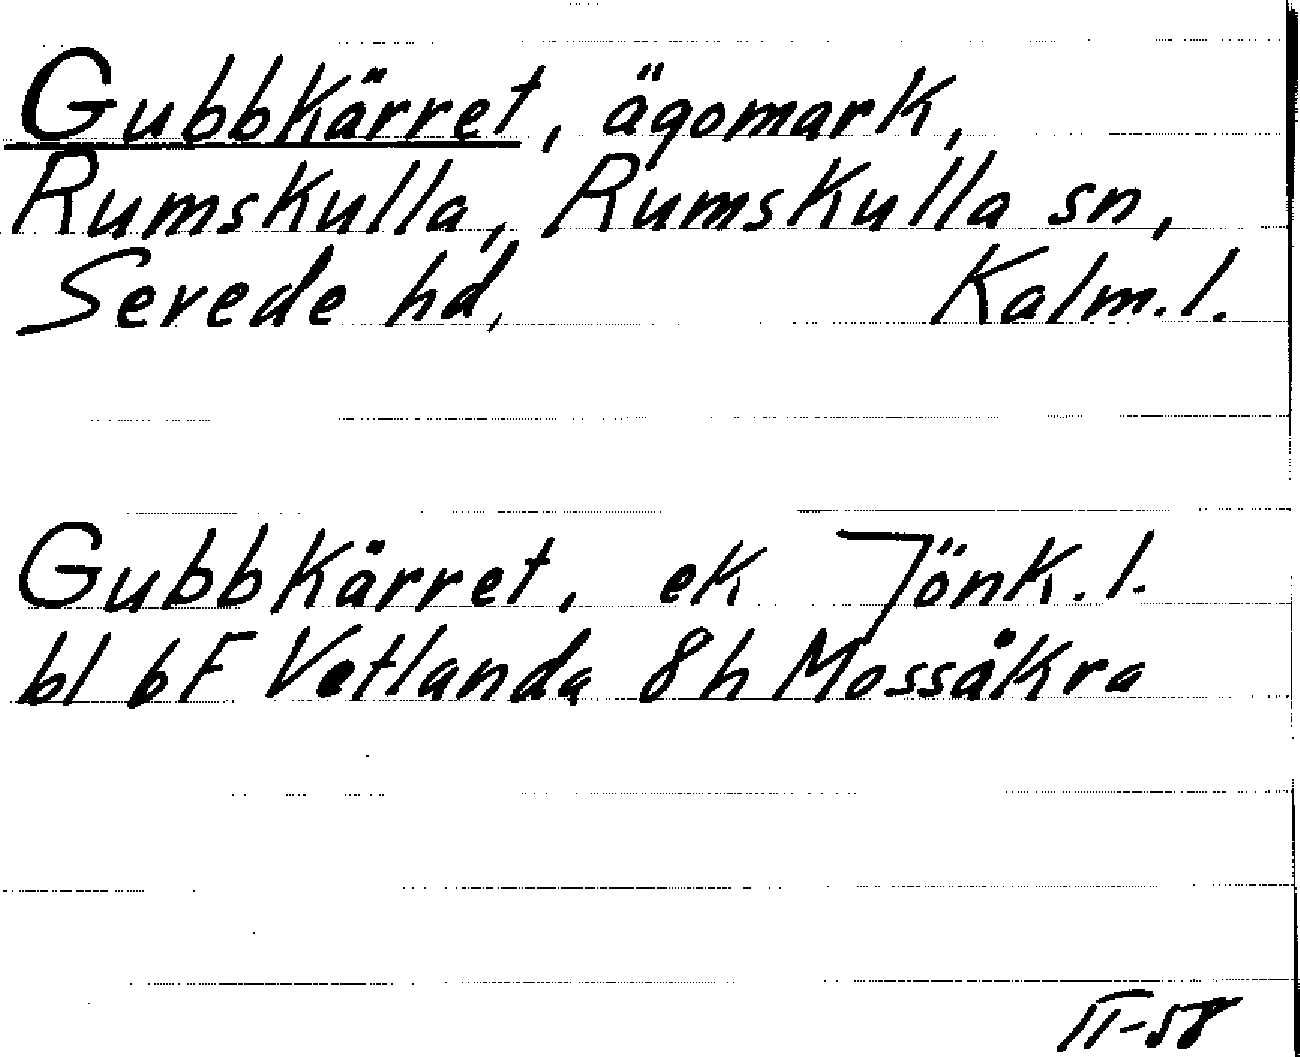 Gubbkärret, ägomark,
Rumskulla, Rumskulla sn,
Sevede hd, Kalm.l.
Gubbkärret, ek Jönk.l.
bl bF Vetlanda 8h Mossåkra
II-58